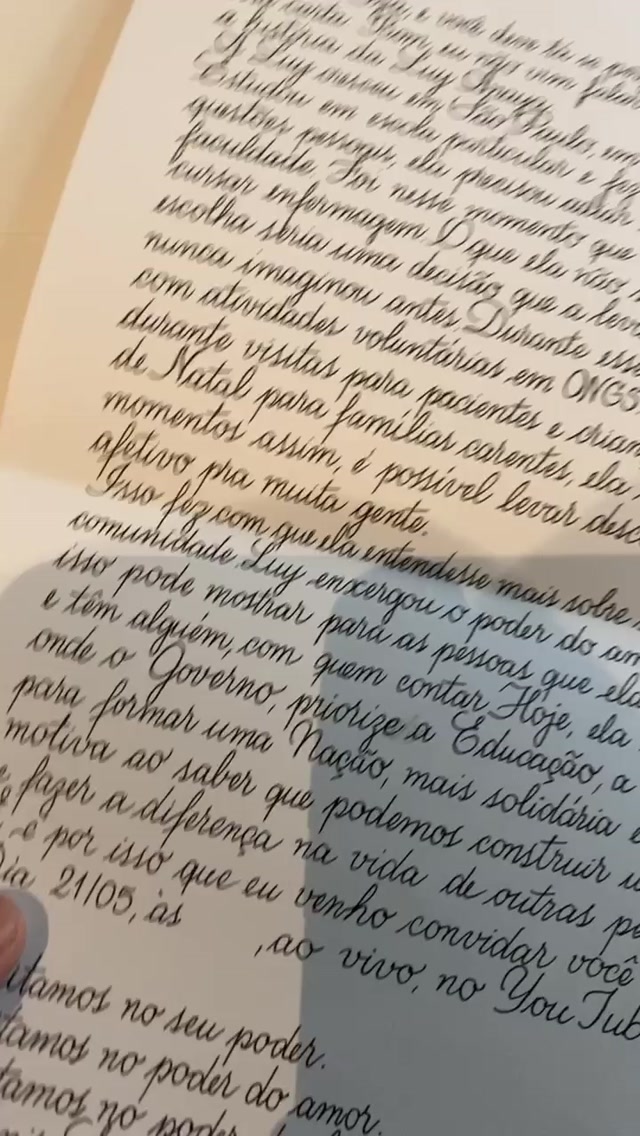 e você deve
carta. Sim, eu não vim falar
a história da Luy
A Luy nasceu em São Paulo, em
Estudou em escola particular e fez
questões pessoais, ela precisou adiar
faculdade. Foi nesse momento que
cursar enfermagem. O que ela não
escolha seria uma decisão que a leva
nunca imaginou antes. Durante ess
com atividades voluntárias em ONGS
durante visitas para pacientes e crian
de Natal para famílias carentes, ela
momentos assim, é possível levar desc
afetivo pra muita gente.
Isso fez com que ela entendesse mais sobre
comunidade. Luy enxergou o poder do am
isso pode mostrar para as pessoas que ela
e têm alguém, com quem contar. Hoje, ela
onde o Governo, priorize a Educação, a
para formar uma Nação, mais solidária e
motiva ao saber que podemos construir u
e fazer a diferença na vida de outras pe
, é por isso que eu venho convidar você
Dia 21/05, às
, ao vivo, no YouTub
itamos no seu poder.
tamos no poder do amor.
tamos no poder